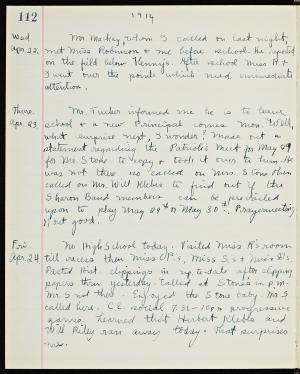 112
1914
Wed
Apr. 22.
Mr. Mackay, whom I called on last night,
met Miss Robinson & me before school. He reported
on the field below Kenny's. After school Miss R &
I went over the points which need immediate
attention.
Thurs.
Apr. 23
Mr. Tucker informed me he is to leave
school & a new Principal comes Mon. Well,
what surprise next, I wonder? Made out a
statement regarding the Patriotic Meet for May 29
for Mr. Stone to copy & took it over to him. He
was not there so called on Mrs. Stone then
called on Mr. Will Klebs to find out if the
Sharon Band members can be prevailed
upon to play May 29th or May 30th. Prayermeeting
not good.
Fri.
Apr. 24
No High School today. Visited Miss R's room
till recess then Miss
Pasted Hist. clippings in up to date after clipping
papers thru yesterday. Called at Stones in p.m.
Mr. S not there. Enjoyed the Stone baby. Mr. S
called here. C.E. social 7:31-10 pm progressive
games. Learned that Herbert Klebs and
Will Riley ran away today. That surprises
me.